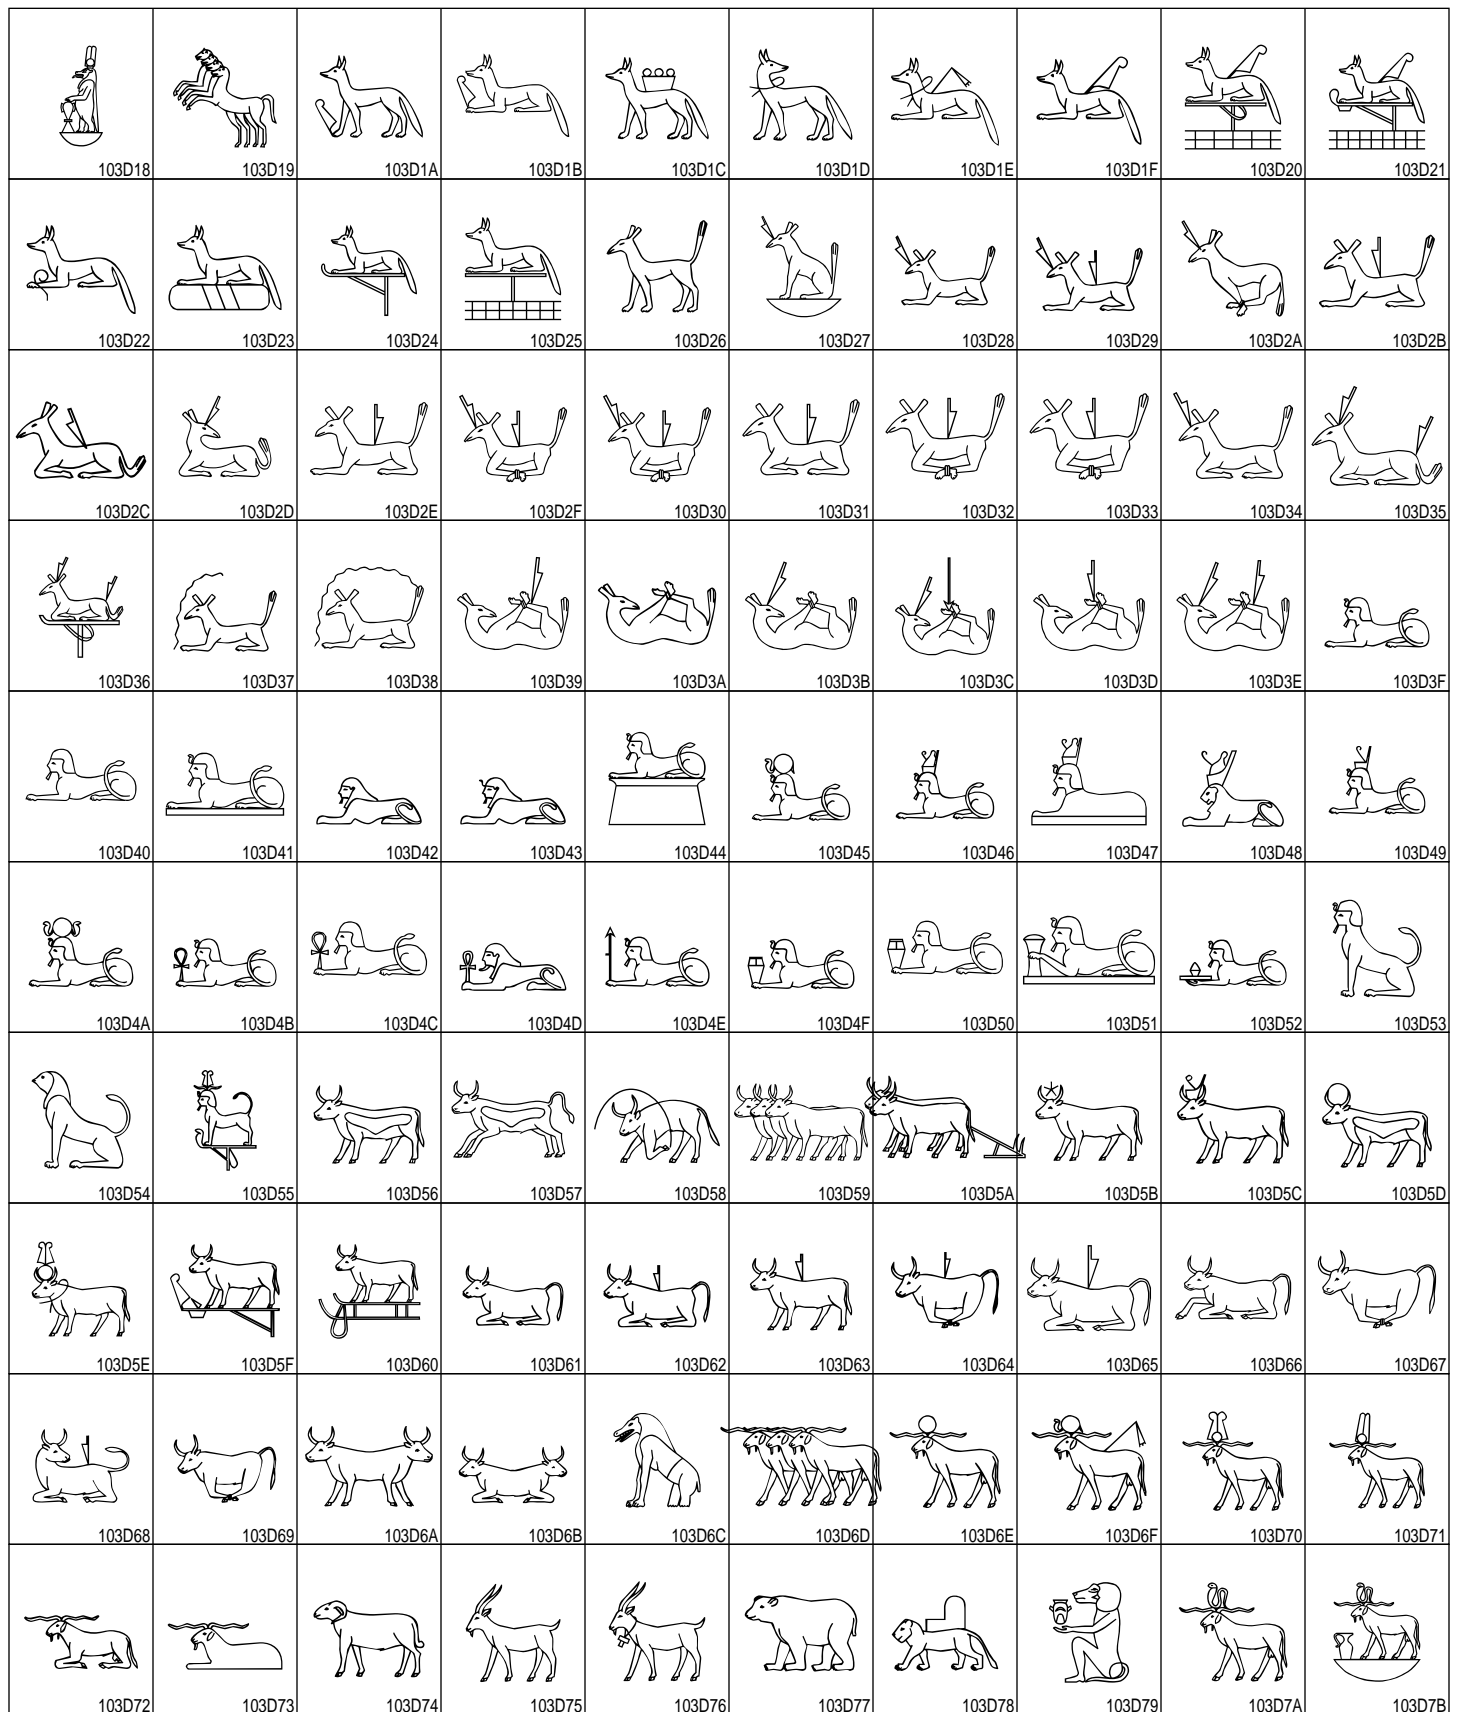 103D18 103D19 103D1A 103D1B 103D1C 103D1D 103D1E 103D1F 103D20 103D21
103D22 103D23 103D24 103D25 103D26 103D27 103D28 103D29 103D2A 103D2B
103D2C 103D2D 103D2E 103D2F 103D30 103D31 103D32 103D33 103D34 103D35
103D36 103D37 103D38 103D39 103D3A 103D3B 103D3C 103D3D 103D3E 103D3F
103D40 103D41 103D42 103D43 103D44 103D45 103D46 103D47 103D48 103D49
103D4A 103D4B 103D4C 103D4D 103D4E 103D4F 103D50 103D51 103D52 103D53
103D54 103D55 103D56 103D57 103D58 103D59 103D5A 103D5B 103D5C 103D5D
103D5E 103D5F 103D60 103D61 103D62 103D63 103D64 103D65 103D66 103D67
103D68 103D69 103D6A 103D6B 103D6C 103D6D 103D6E 103D6F 103D70 103D71
103D72 103D73 103D74 103D75 103D76 103D77 103D78 103D79 103D7A 103D7B